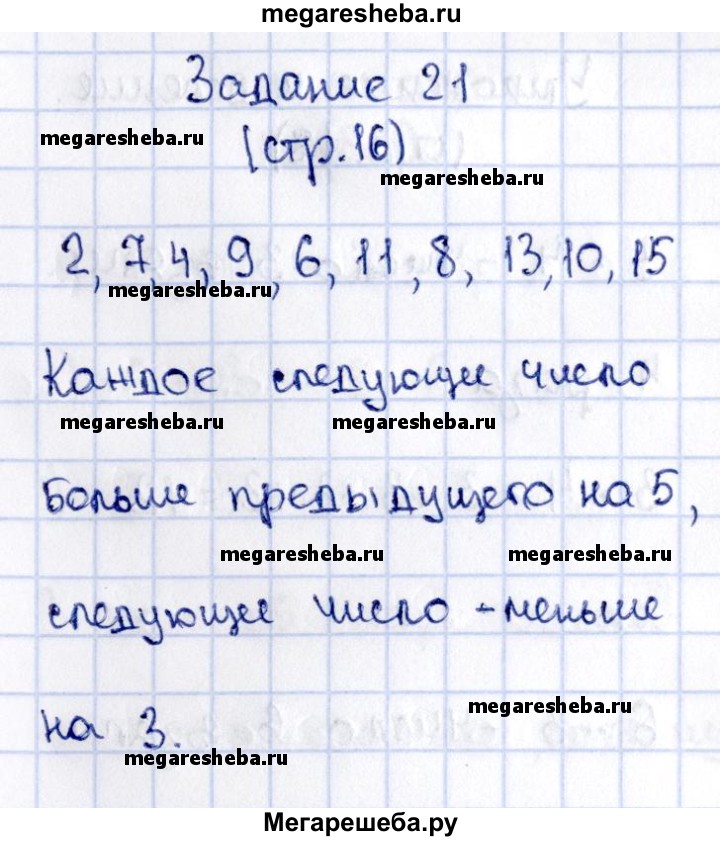 megaresheba.ru
Задание 21
megaresheba.ru
(стр.16)
megaresheba.ru
2, 7, 4, 9, 6, 11, 8, 13, 10, 15
megaresheba.ru
Каждое следующее число
megaresheba.ru
megaresheba.ru
больше предыдущего на 5,
megaresheba.ru
megaresheba.ru
следующее число - меньше
megaresheba.ru
на 3.
megaresheba.ru
Мегарешеба.ру